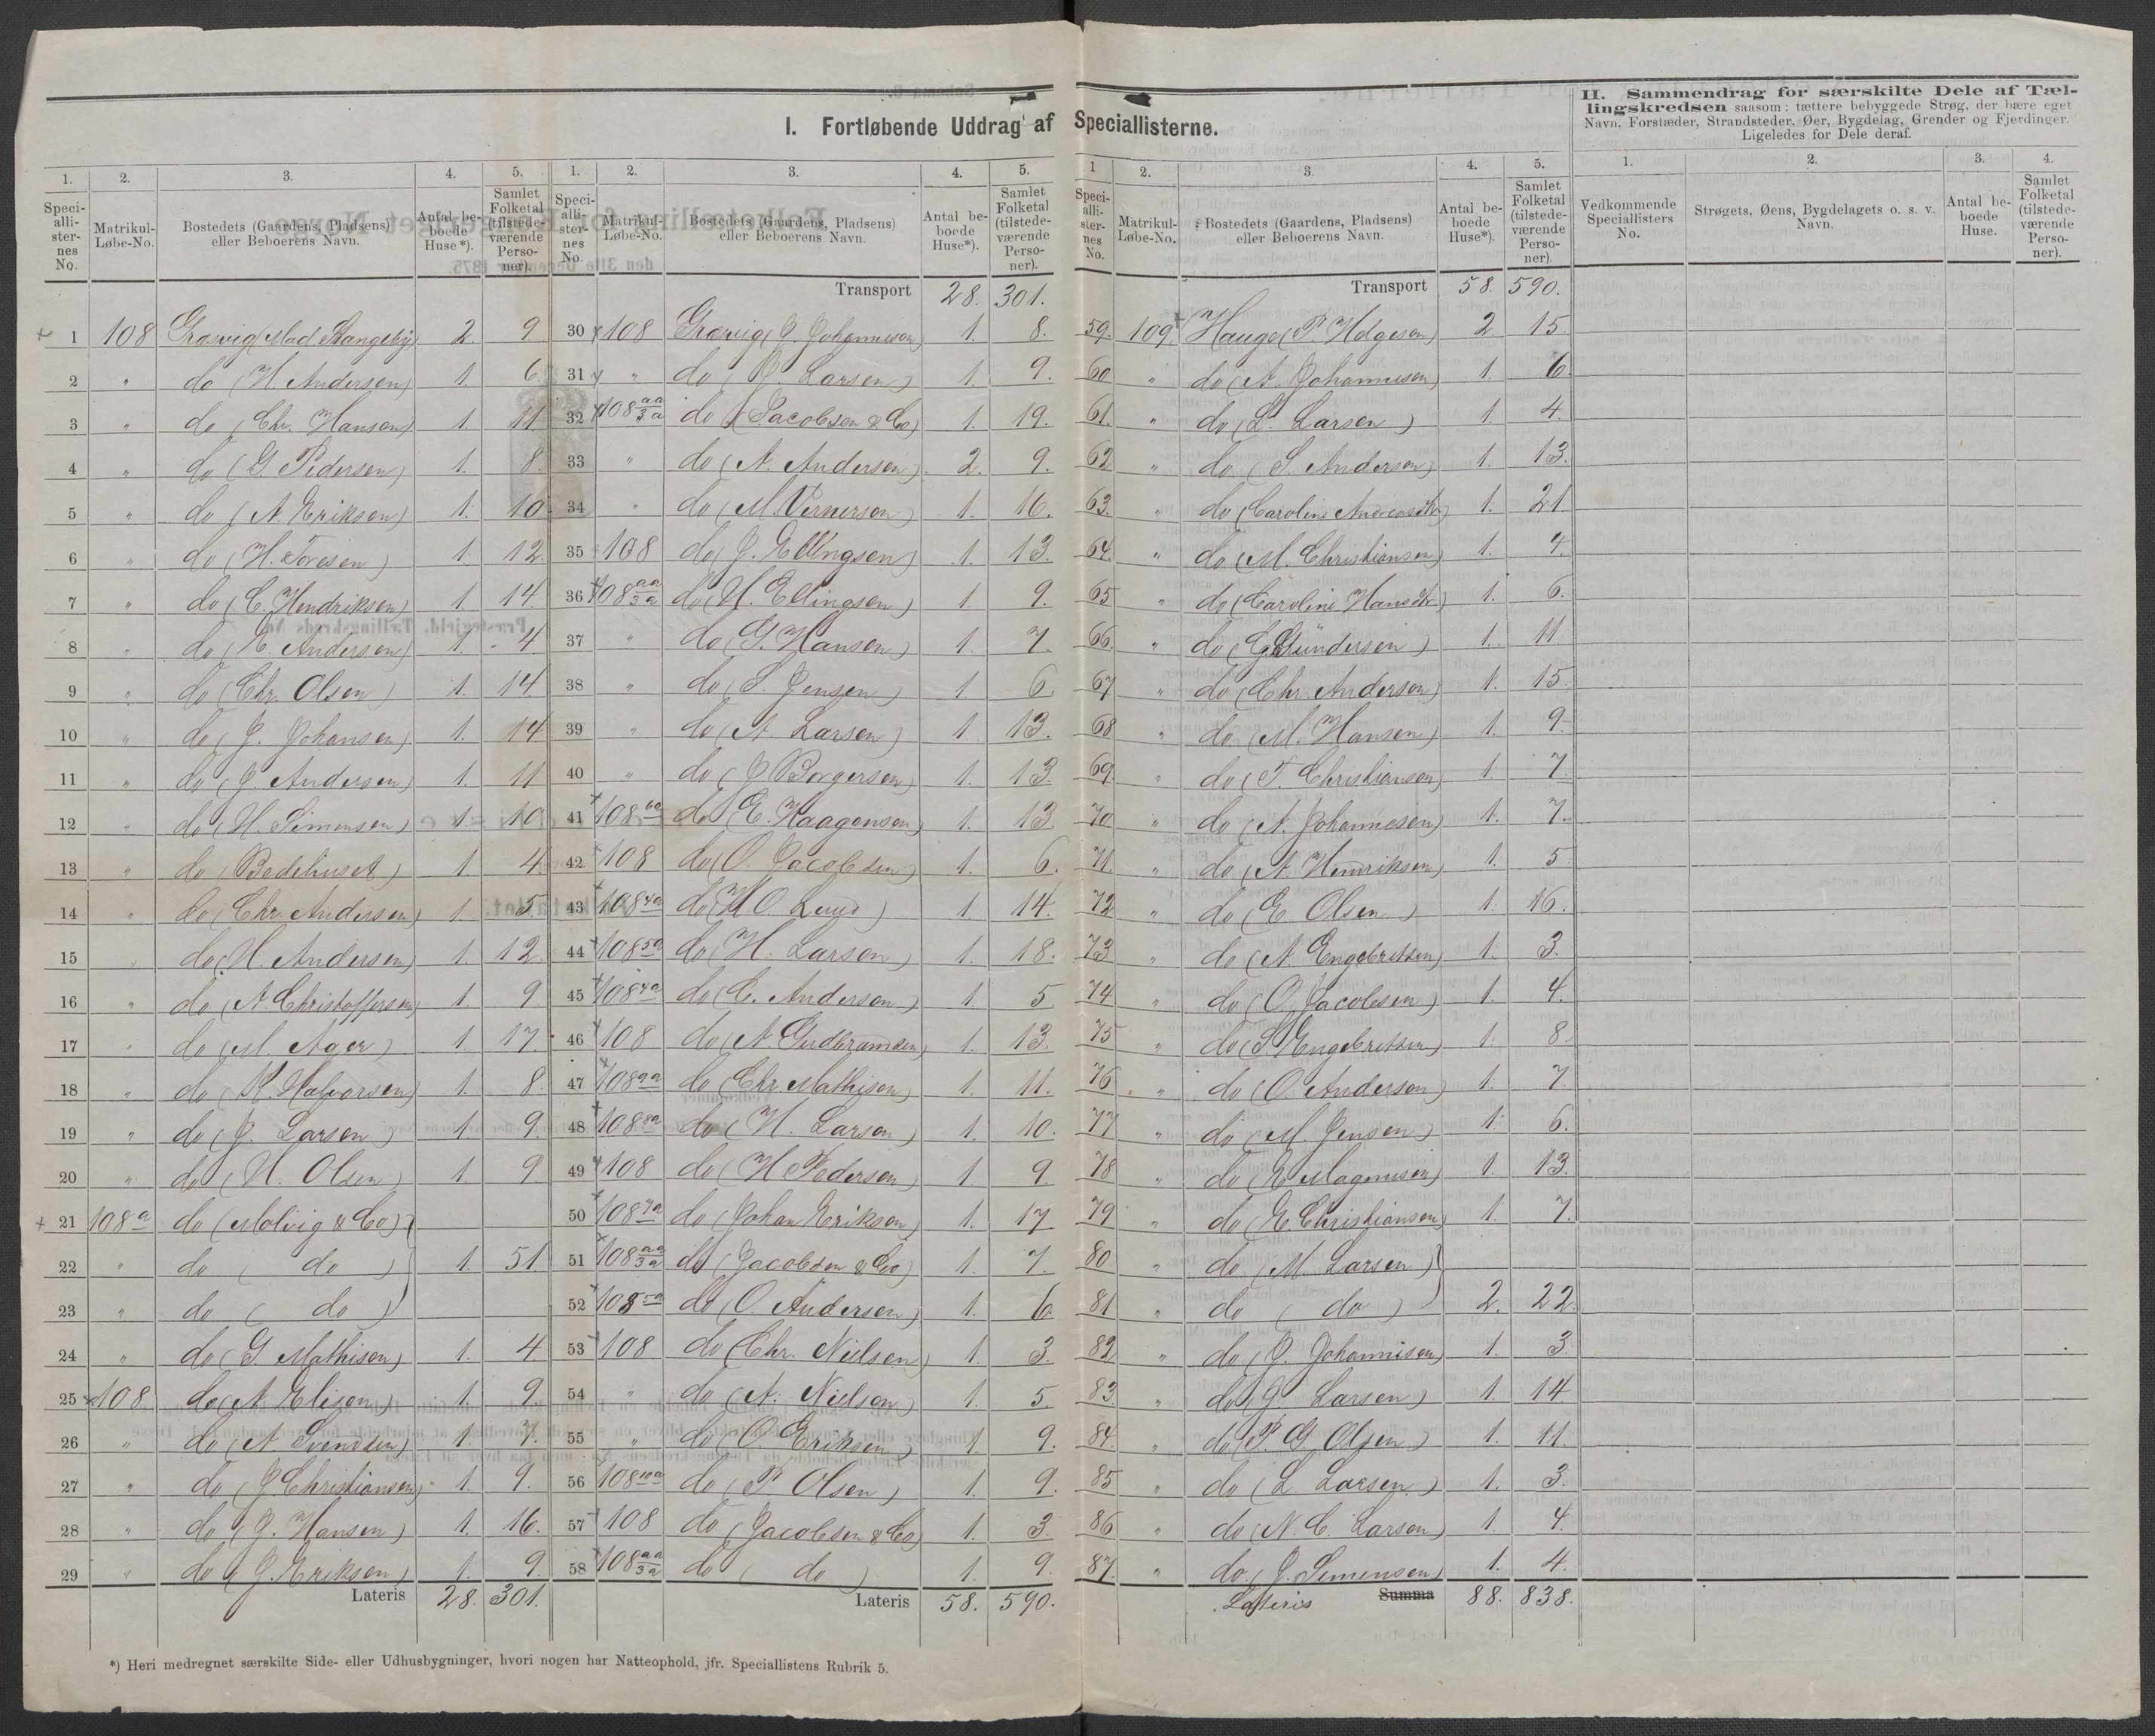 I. Fortløbende Uddrag af Speciallisterne.
II. Sammendrag for særskilte Dele af Tæl-
lingskredsen saasom: tættere bebyggede Strøg, der bære eget
Navn. Forstæder, Strandsteder, Øer, Bygdelag, Grender og Fjerdinger.
Ligeledes for Dele deraf.
1. 2. 3. 4. 5.
Speci-alli-ster-nes No. Matrikul-Løbe-No. Bostedets (Gaardens, Pladsens) eller Beboerens Navn. Antal be-boede Huse*). Samlet Folketal (tilstede-værende Perso-ner).
1 108 Græsvig (Mad Stangeby) 2. 9
2 " do (H. Andersen) 1. 6.
3 " do (Chr. Hansen) 1. 11
4 " do (G. Pedersen) 1. 8.
5 " do (A. Eriksen) 1. 10
6 " do (H. Toresen) 1. 12
7 " do (C. Hendriksen) 1. 14
8 " do (A. Andersen) 1. 4.
9 " do (Chr. Olsen) 1. 14
10 " do (J. Johansen) 1. 14
11 " do (J. Andersen) 1. 11
12 " do (H. Simensen) 1. 10
13 " do (Bedehuset) 1. 4.
14 " do (Chr. Andersen) 1. 5.
15 " do (H. Andersen) 1. 12
16 " do (A. Christoffersen) 1. 9
17 " do (M. Ager) 1. 17.
18 " do (H. Halvorsen) 1. 8.
19 " do (J. Larsen) 1 9.
20 " do (H. Olsen) 1. 9.
21 108a do (Molvig & Co)
22 " do ( do ) 1. 51.
23 " do ( do )
24 " do (G. Mathisen) 1. 4.
25 108 do (A. Elisen) 1. 9.
26 " do (A. Svendsen) 1. 7.
27 " do (J. Christiansen) 1. 9.
28 " do (J. Hansen) 1. 16.
29 " do (J. Eriksen) 1. 9.
Lateris 28. 301.
1. 2. 3. 4. 5.
Speci-alli-ster-nes No. Matrikul-Løbe-No. Bostedets (Gaardens, Pladsens) eller Beboerens Navn. Antal be-boede Huse*). Samlet Folketal (tilstede-værende Perso-ner).
Transport 28. 301.
30 108 Græsvig (J. Johannesen) 1. 8.
31 " do (J. Larsen) 1. 9.
32 108 aa/3a do (Jacobsen & Co) 1. 19.
33 " do (A. Andersen) 2. 9.
34 " do (M. Vernersen) 1. 16.
35 108 do (J. Ellingsen) 1. 13.
36 108 aa/3a do (H. Ellingsen) 1. 9.
37 " do (G. Hansen) 1. 7.
38 " do (S. Jensen) 1 6.
39 " do (A. Larsen) 1 13.
40 " do (J. Borgersen) 1. 13
41 108 6a do (E. Haagensen) 1. 13.
42 108 do (O. Jacobsen) 1. 6.
43 108 4a do (H. O. Lund) 1. 14.
44 108 5a do (H. Larsen) 1. 18.
45 108 4a do (C. Andersen) 1. 5.
46 108 do (A. Gudbrandsen) 1. 13.
47 108 9a do (Chr. Mathisen) 1. 11.
48 108 8a do (H. Larsen) 1. 10.
49 108 do (H. Pedersen) 1. 9.
50 108 7a do (Johan Eriksen) 1. 17.
51 108 aa/3a do (Jacobsen & Co) 1. 7.
52 108 5a do (O. Andersen) 1. 6.
53 108 do (Chr. Nielsen) 1. 3.
54 " do (A. Nielsen) 1. 5.
55 " do (O. Eriksen) 1 9.
56 108 10a do (P. Olsen) 1. 9.
57 108 do (Jacobsen & Co) 1. 3.
58 108 aa/3a do ( do ) 1. 9.
Lateris 58. 590.
1 2. 3. 4. 5.
Speci-alli-ster-nes No. Matrikul-Løbe-No. Bostedets (Gaardens, Pladsens) eller Beboerens Navn. Antal be-boede Huse*). Samlet Folketal (tilstede-værende Perso-ner).
Transport 58. 590.
59. 109. Hauge (P. Helgesen) 2 15.
60 " do (A. Johannesen) 1. 6.
61. " do (L. Larsen) 1. 4.
62 " do (S. Andersen) 1. 13.
63. " do (Caroline Andreasdtr) 1. 21
64. " do (M. Christiansen) 1. 4.
65 " do (Caroline Hansdtr) 1. 6.
66. " do (G. Gundersen) 1. 11
67 " do (Chr. Andersen) 1. 15.
68 " do (M. Hansen) 1. 9.
69. " do (T. Christiansen) 1. 7.
70 " do (A. Johannesen) 1. 7.
71. " do (A. Henriksen) 1. 5
72 " do (E. Olsen) 1. 16.
73 " do (A. Engebretsen) 1. 3.
74 " do (O. Jacobsen) 1. 4.
75 " do (S. Engebretsen) 1. 8.
76 " do (O. Andersen) 1. 7.
77 " do (M. Jensen) 1. 6.
78 " do (E. Magnusen) 1. 13.
79 " do (E. Christiansen) 1. 7.
80 " do (M. Larsen)
81 " do ( do ) 2. 22.
82 " do (J. Johannesen) 1. 3
83. " do (J. Larsen) 1. 14
84. " do (P. G. Olsen) 1. 11.
85 " do (L. Larsen) 1. 3.
86 " do (N. C. Larsen) 1. 4.
87. " do (J. Simensen) 1. 4.
Lateris Summa 88. 838.
1. 2. 3. 4.
Vedkommende Speciallisters No. Strøgets, Øens, Bygdelagets o. s. v. Navn. Antal be-boede Huse. Samlet Folketal (tilstede-værende Perso-ner).
*) Heri medregnet særskilte Side- eller Udhusbygninger, hvori nogen har Natteophold, jfr. Speciallistens Rubrik 5.